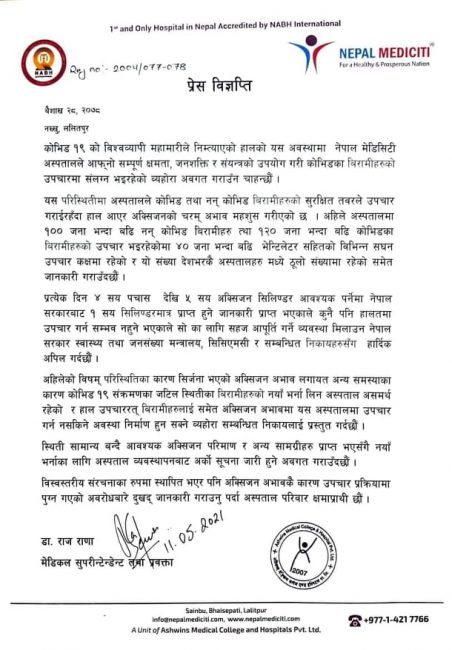 1st and Only Hospital in Nepal Accredited by NABH International
NABH
Reg no:- 2004/077-078
NEPAL MEDICITI
For a Healthy & Prosperous Nation
प्रेस विज्ञप्ति
बैशाख २८, २०७८
नख्खु, ललितपुर
कोभिड १९ को विश्वव्यापी महामारीले निम्त्याएको हालको यस अवस्थामा नेपाल मेडिसिटी
अस्पतालले आफ्नो सम्पूर्ण क्षमता, जनशक्ति र संयन्त्रको उपयोग गरी कोभिडका बिरामीहरुको
उपचारमा संलग्न भइरहेको व्यहोरा अवगत गराउँन चाहन्छौं ।
यस परिस्थितीमा अस्पतालले कोभिड तथा नन् कोभिड बिरामीहरुको सुरक्षित तवरले उपचार
गराईरहँदा हाल आएर अक्सिजनको चरम् अभाव महशुस गरीएको छ । अहिले अस्पतालमा
१०० जना भन्दा बढि नन् कोभिड बिरामीहरु तथा १२० जना भन्दा बढि कोभिडका
बिरामीहरुको उपचार भइरहेकोमा ४० जना भन्दा बढि भेन्टिलेटर सहितको बिभिन्न सघन
उपचार कक्षमा रहेको र यो संख्या देशभरकै अस्पतालहरु मध्ये ठूलो संख्यामा रहेको समेत
जानकारी गराउँदछौं ।
प्रत्येक दिन ४ सय पचास देखि ५ सय अक्सिजन सिलिण्डर आवश्यक पर्नेमा नेपाल
सरकारबाट १ सय सिलिण्डरमात्र प्राप्त हुने जानकारी प्राप्त भएकाले कुनै पनि हालतमा
उपचार गर्न सम्भव नहुने भएकाले सो का लागि सहज आपूर्ति गर्ने व्यवस्था मिलाउन नेपाल
सरकार स्वास्थ्य तथा जनसंख्या मन्त्रालय, सिसिएमसी र सम्बन्धित निकायहरुसँग हार्दिक
अपिल गर्दछौं ।
अहिलेको विषम् परिस्थितिका कारण सिर्जना भएको अक्सिजन अभाव लगायत अन्य समस्याका
कारण कोभिड १९ संक्रमणका जटिल स्थितीका बिरामीहरुको नयाँ भर्ना लिन अस्पताल असमर्थ
रहेको र हाल उपचाररत् बिरामीहरुलाई समेत अक्सिजन अभावमा यस अस्पतालमा उपचार
गर्न नसकिने अवस्था निर्माण हुन सक्ने व्यहोरा सम्बन्धित निकायलाई प्रस्तुत गर्दछौं ।
स्थिती सामान्य बन्दै आवश्यक अक्सिजन परिमाण र अन्य सामग्रीहरु प्राप्त भएसँगै नयाँ
भर्नाका लागि अस्पताल व्यवस्थापनबाट अर्को सूचना जारी हुने अवगत गराउँदछौं ।
विश्वस्तरीय संरचनाका रुपमा स्थापित भएर पनि अक्सिजन अभावकै कारण उपचार प्रक्रियामा
पुग्न गएको अवरोधबारे दुखद् जानकारी गराउनु पर्दा अस्पताल परिवार क्षमाप्रार्थी छौं ।
11.05.2021
डा. राज राणा
मेडिकल सुपरीन्टेन्डेन्ट तथा प्रवक्ता
Ashwins Medical College & Hospitals Pvt. Ltd.
2007
Sainbu, Bhaisepati, Lalitpur
info@nepalmediciti.com, www.nepalmediciti.com
A Unit of Ashwins Medical College and Hospitals Pvt. Ltd.
+977-1-421 7766